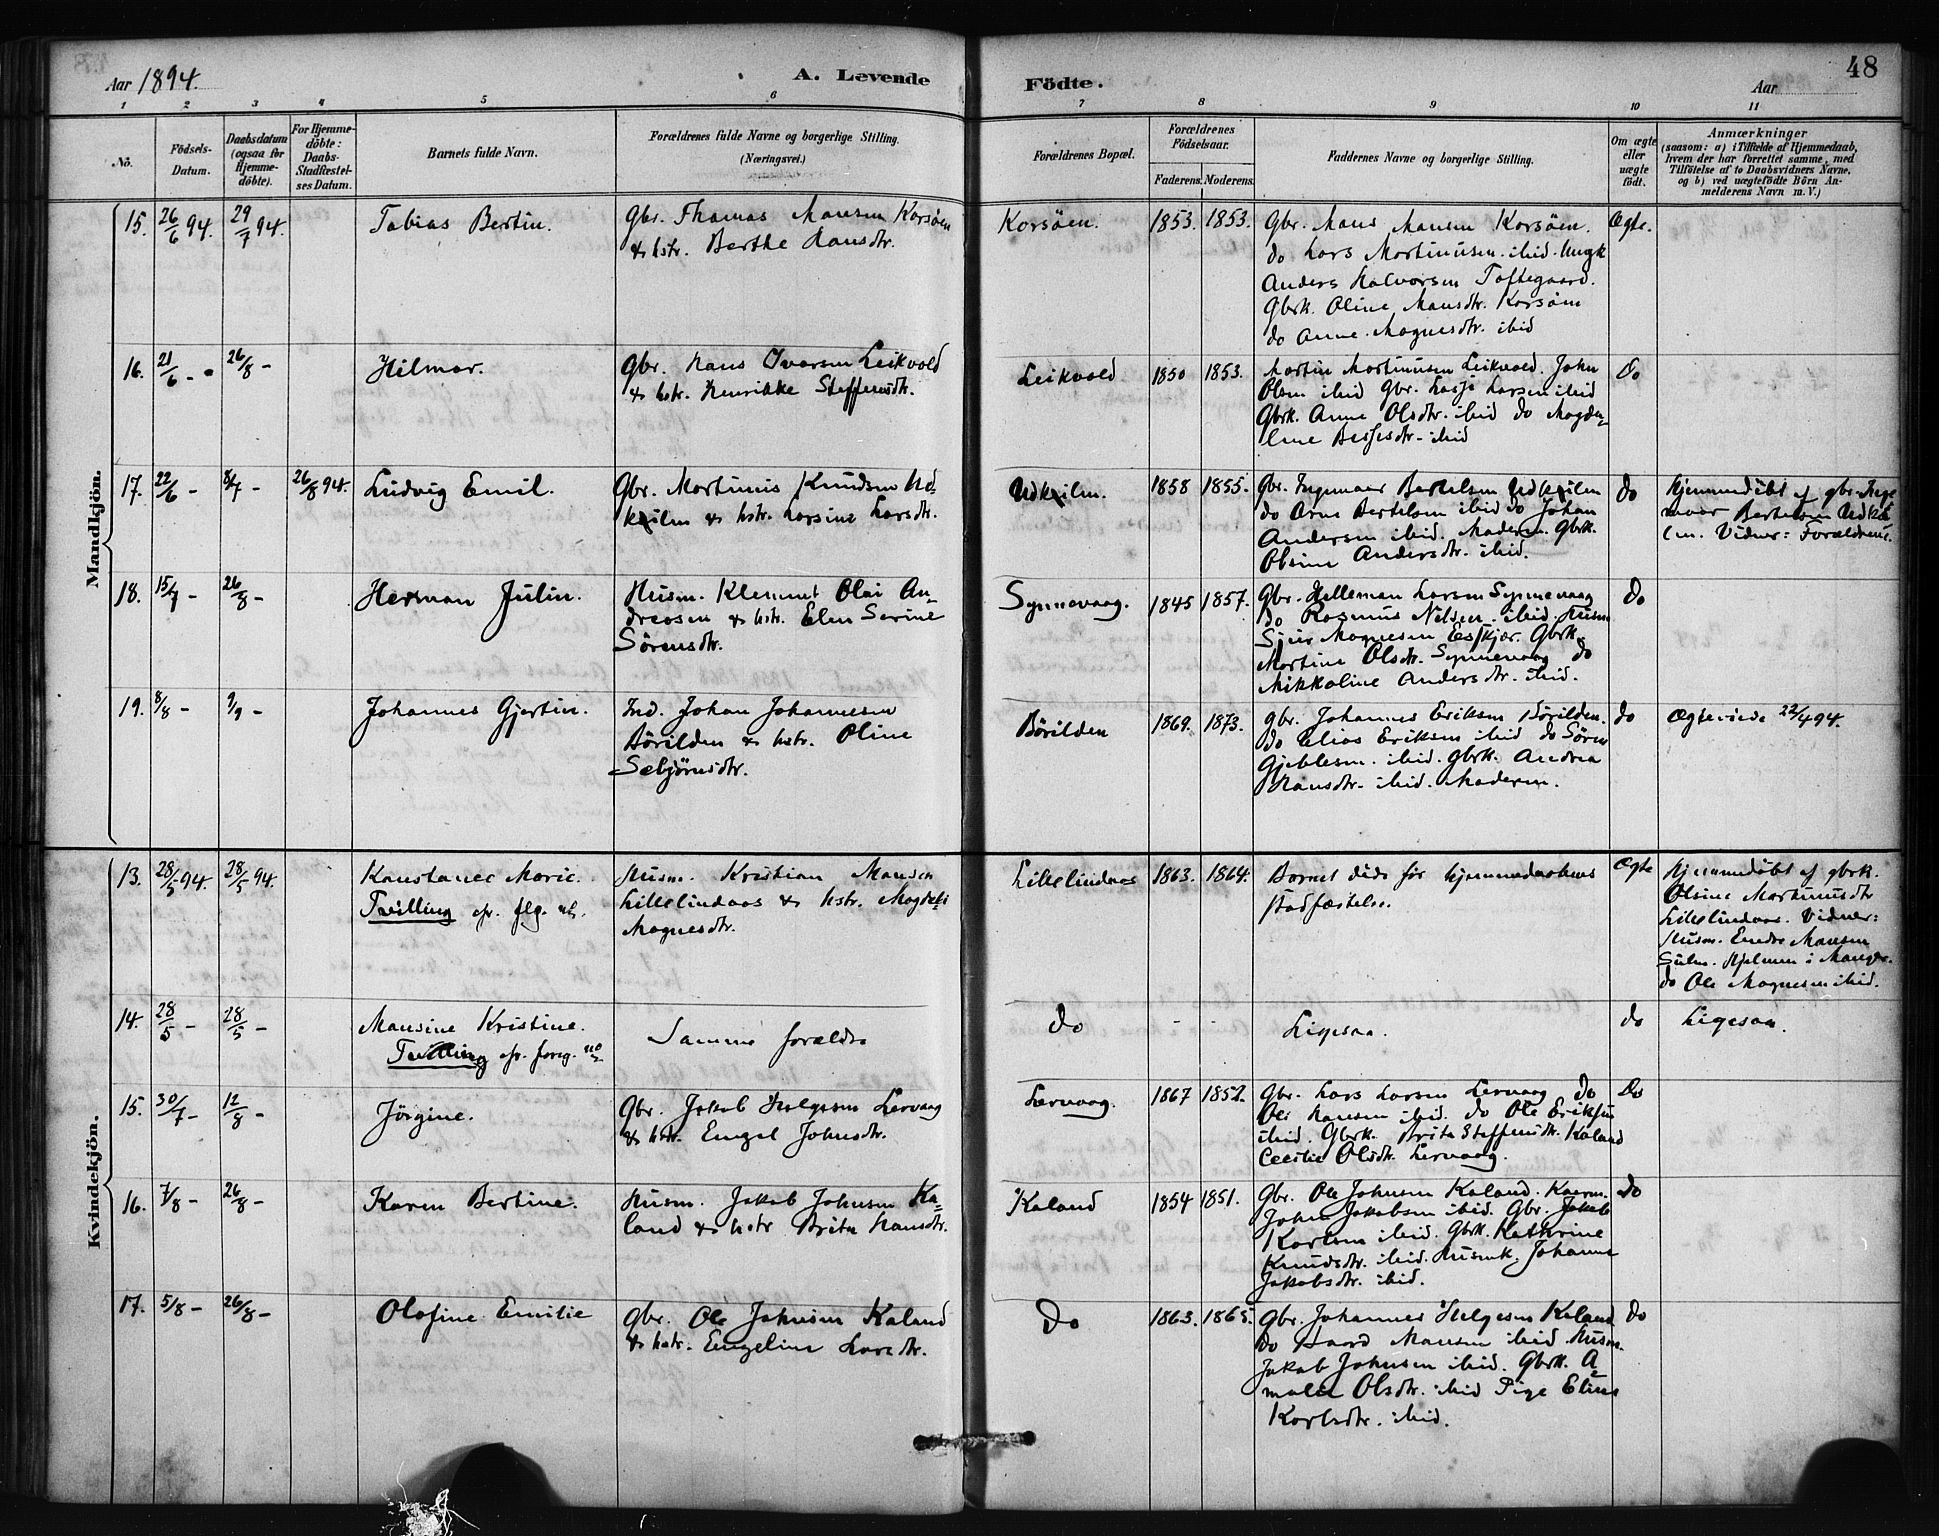 Aar 1894.
A. Levende
Födte.
Aar
48
1 2 3 4 5 6 7 8 9 10 11
No.
Födsels-
Datum.
Daabsdatum
(ogsaa for
Hjemme-
döbte).
For Hjemme-
döbte:
Daabs-
Stadfæstel-
ses Datum.
Barnets fulde Navn.
Forældrenes fulde Navne og borgerlige Stilling.
(Næringsvei.)
Forældrenes Bopæl.
Forældrenes
Födselsaar.
Faderens. Moderens.
Faddernes Navne og borgerlige Stilling.
Om ægte
eller
uægte
födt.
Anmærkninger
(saasom: a) i Tilfælde af Hjemmedaab,
hvem der har forrettet samme, med
Tilföielse af to Daabsvidners Navne,
og b) ved uægtefödte Börn An-
melderens Navn m. V.)
Mandkjön.
15. 26/6 94. 29/7 94.
Tobias Bertin.
Gbr. Thomas Mansen Korsöen
& hstr. Berthe Hansdtr.
Korsöen.
1853. 1853.
Gbr. Mons Mansen Korsöen.
do Lars Martinusen ibid. Ungk
Anders Halvorsen Toftegaard.
Gbrk. Oline Mansdtr. Korsöen
do Anne Magnesdtr. ibid
Ægte.
16. 21/6 - 26/8 -
Hilmar.
Gbr. Hans Ivarsen Leikvold
& hstr. Henrikke Steffensdtr.
Leikvold
1850 1853.
Martin Martinusen Leikvold. John
Olsen ibid Gbr. Lasse Larsen ibid
Gbrk. Anne Olsdtr. ibid do Magda-
lene ibid
do
17. 22/6 - 8/7 - 26/8 94.
Ludvig Emil.
Gbr. Martinus Knudsen Ud-
kjilen & hstr. Larsine Larsdtr.
Udkjilen.
1858 1855.
Gbr. Ingemaer Bertelsen Udkjilen
do Arne Bertelsen ibid do Johan
Andersen ibid. Moderen. Gbrk.
Olsine Andersdtr. ibid.
do
Hjemmedöbt af gbr. Inge
maer Bertelsen Udkji
len. Vidner: Forældrene.
18. 15/7 - 26/8 -
Herman Julin.
Husm. Klemmet Olai An-
dreasen & hstr. Elen Serine
Sörensdtr.
Synnevaag.
1845 1857.
Gbr. Helleman Larsen Synnevaag
do Rasmus Nilsen ibid. Husm
Sjur Magnesen Eskjær. Gbrk.
Martine Olsdtr. Synnevaag do
Mikkoline Andersdtr. ibid.
do
19. 8/8 - 9/9 -
Johannes Gjertin.
Ind. Johan Johannesen
Börilden & hstr. Oline
Sebjörnsdtr.
Börilden
1869. 1873.
Gbr. Johannes Eriksen Börilden.
do Elias Eriksen ibid do Sören
Gjeblesen. ibid. gbrk. Andrea
Hansdtr. ibid. Moderen.
do
Ægteviede 22/4 94.
Kvindekjön.
13. 28/5 94. 28/5 94.
Konstance Marie.
Tvilling cfr. flg. no.
Husm. Kristian Mansen
Lillelindaas & hstr. Magdeli
Magnesdtr.
Lillelindaas
1863. 1864.
Barnet döde för hjemmedaabens
stadfæstelse.
Ægte
Hjemmedöbt af gbrk.
Olsine Martinusdtr
Lillelindaas. Vidner:
Husm. Endre Mansen
Hjelmen i Manger.
do Ole Magnesen ibid.
14. 28/5 - 28/5 -
Mansine Kristine.
Tvilling cfr. foreg. no
Samme forældre
do
- -
Ligesaa.
do
Ligesaa.
15. 30/7 - 12/8 -
Jörgine.
Gbr. Jakob Helgesen Lervaag
& hstr. Engel Johnsdtr.
Lervaag.
1867 1852.
Gbr. Lars Larsen Lervaag do
Ole Hansen ibid. do Ole Eriksen
ibid. Gbrk. Brita Steffensdtr. Kaland
Cecilie Olsdtr. Lervaag.
do
16. 7/8 - 26/8 -
Karen Bertine.
Husm. Jakob Johnsen Ka-
land & hstr Brita Hansdtr.
Kaland
1854 1851.
Gbr. Ole Johnsen Kaland.
John Jakobsen ibid. Gbr. Jakob
Karlsen ibid. Gbrk. Kathrine
Knudsdtr. ibid. Husmk. Johanne
Jakobsdtr. ibid.
do
17. 5/8 - 26/8 -
Olofine Emilie
Gbr. Ole Johnsen Kaland
& hstr. Engeline Larsdtr.
do
1863. 1865.
Gbr. Johannes Helgesen Kaland
do Mansen ibid. Husm.
Jakob Johnsen ibid. Gbrk. A-
malie Olsdtr. ibid Pige Eline
Karlsdtr. ibid.
do